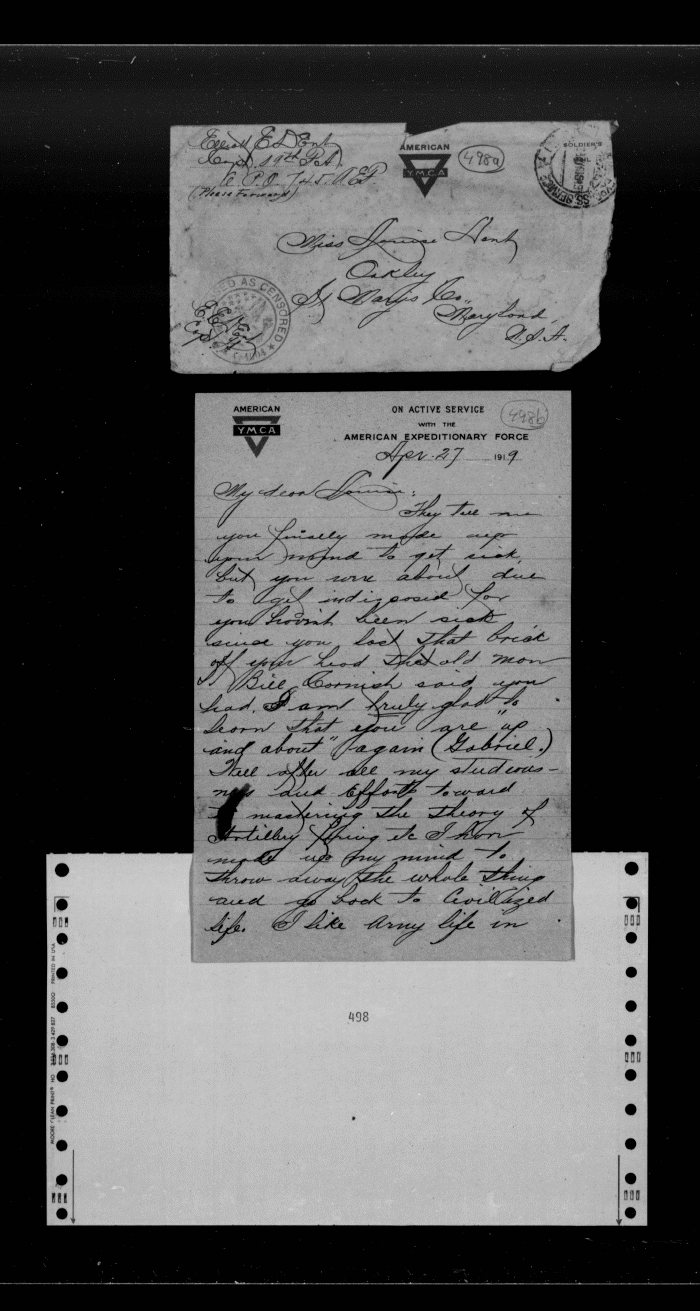 Elliott E Dent
Capt. 19th F.A.
A.P.O. 745. A.E.F.
(Please Forward)
AMERICAN
YMCA
498a
SOLDIER'S
SERVICE
Miss Louise Dent
Oakley
St Marys Co.,
Maryland,
U.S.A.
AS CENSORED
AMERICAN
YMCA
ON ACTIVE SERVICE
WITH THE
AMERICAN EXPEDITIONARY FORCE
498b
Apr. 27 1919
My dear Louise:
They tell me
you finally made up
your mind to get sick,
but you were about due
to get indisposed for
you havint been sick
since you lost that brick
off your head that old man
Bill Cornish said you
had. I am truly glad to
learn that you are "up
and about" again (Gabriel.)
Well after all my studious-
ness and efforts toward
mastering the theory of
Artillery firing etc I have
made up my mind to
throw away the whole thing
and go back to Civilized
life. I like Army life in
498
PRINTED IN USA
MOORE CLEAN PRINT